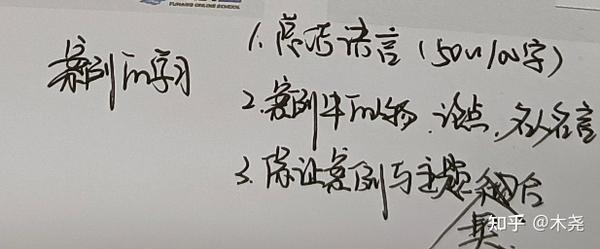 FUHANG ONLINE SCHOOL
案例的学习
1. 总结语言(50~100字)
2. 案例中的人物、论点、名人名言
3. 保证案例与主题契合
知乎 @木尧